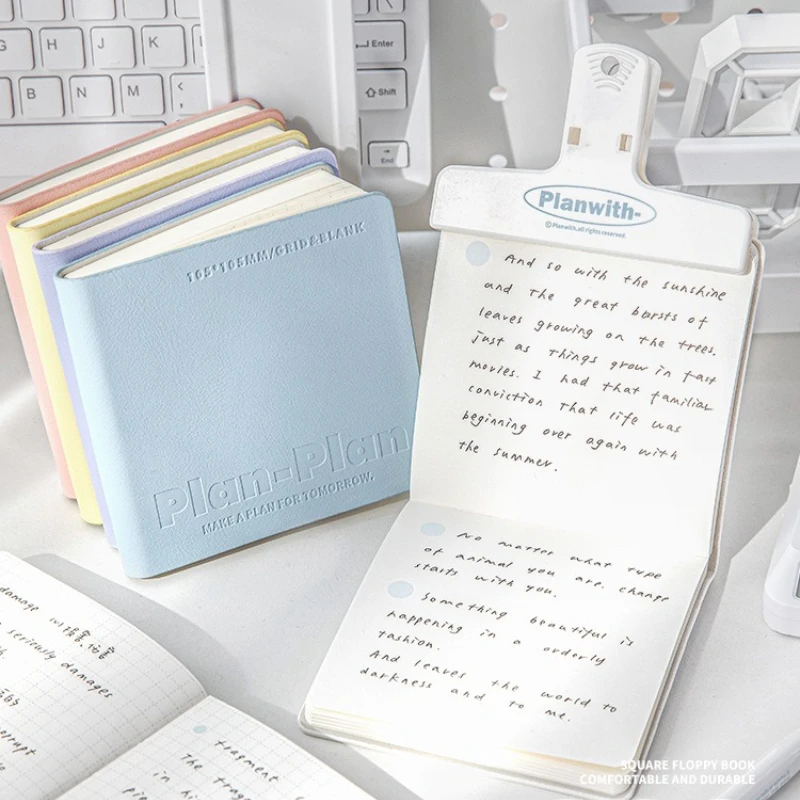 G
H
J
K
B
N
M
Enter
Shift
End
105*105MM/GRID&BLANK
Plan-Plan
MAKE A PLAN FOR TOMORROW.
Planwith-
©Planwith, all rights reserved.
And so with the sunshine
and The great bursts of
leaves growing on the trees.
just as Things grow in fast
movies. I had that familiar
conviction That life was
beginning over again with
the summer.
No matter what type
of animal you are. change
starts with you.
Something beautiful is
happening in a orderly
fashion.
And leaves the world to
darkness and to me.
damage
seriously damages
fragment
The
in hi
SQUARE FLOPPY BOOK
COMFORTABLE AND DURABLE